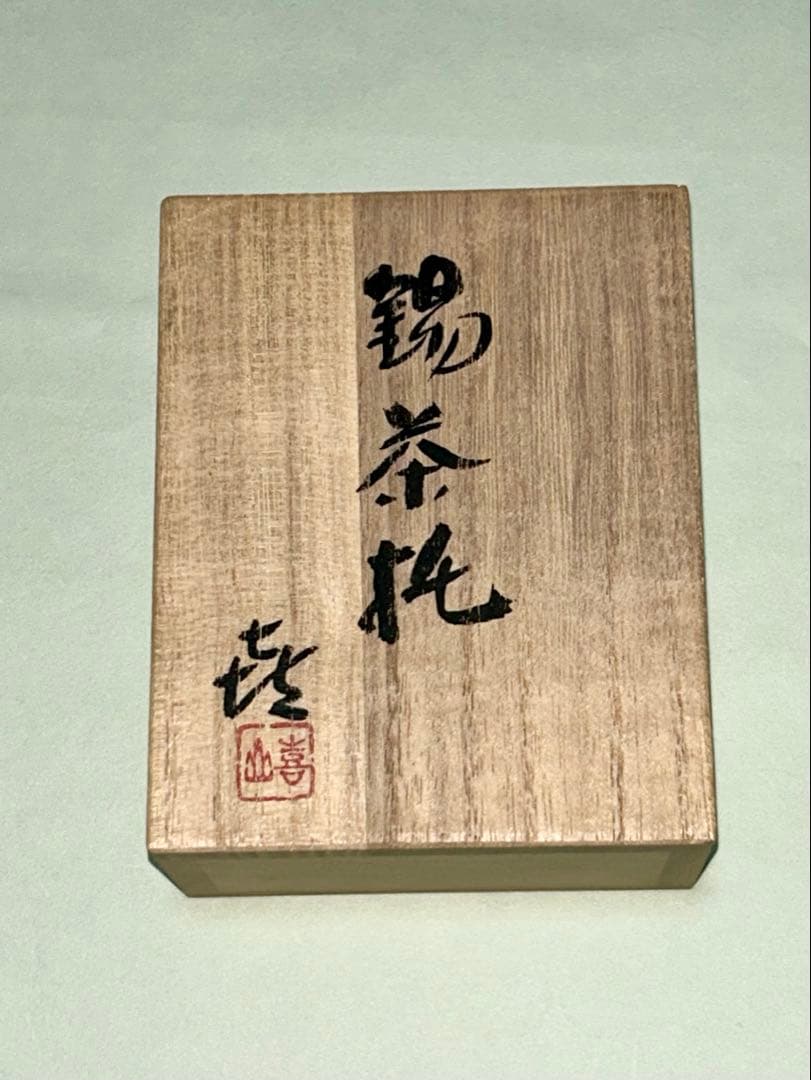 錫茶托
㐂
喜山